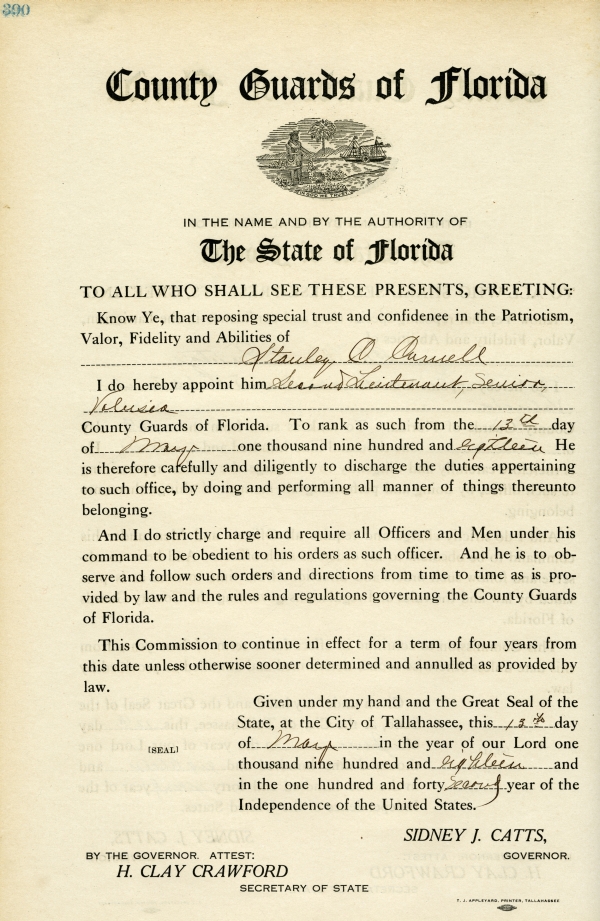 390
County Guards of Florida
IN GOD WE TRUST
IN THE NAME AND BY THE AUTHORITY OF
The State of Florida
TO ALL WHO SHALL SEE THESE PRESENTS, GREETING:
Know Ye, that reposing special trust and confidenee in the Patriotism,
Valor, Fidelity and Abilities of
Stanley O.
I do hereby appoint him Second Lieutenant, Senior,
Volusia
County Guards of Florida. To rank as such from the 13th day
of May one thousand nine hundred and eighteen He
is therefore carefully and diligently to discharge the duties appertaining
to such office, by doing and performing all manner of things thereunto
belonging.
And I do strictly charge and require all Officers and Men under his
command to be obedient to his orders as such officer. And he is to ob-
serve and follow such orders and directions from time to time as is pro-
vided by law and the rules and regulations governing the County Guards
of Florida.
This Commission to continue in effect for a term of four years from
this date unless otherwise sooner determined and annulled as provided by
law.
Given under my hand and the Great Seal of the
State, at the City of Tallahassee, this 13th day
of May in the year of our Lord one
[SEAL]
thousand nine hundred and eighteen and
in the one hundred and forty second year of the
Independence of the United States.
SIDNEY J. CATTS,
BY THE GOVERNOR. ATTEST: GOVERNOR.
H. CLAY CRAWFORD
SECRETARY OF STATE
T. J. APPLEYARD, PRINTER, TALLAHASSEE